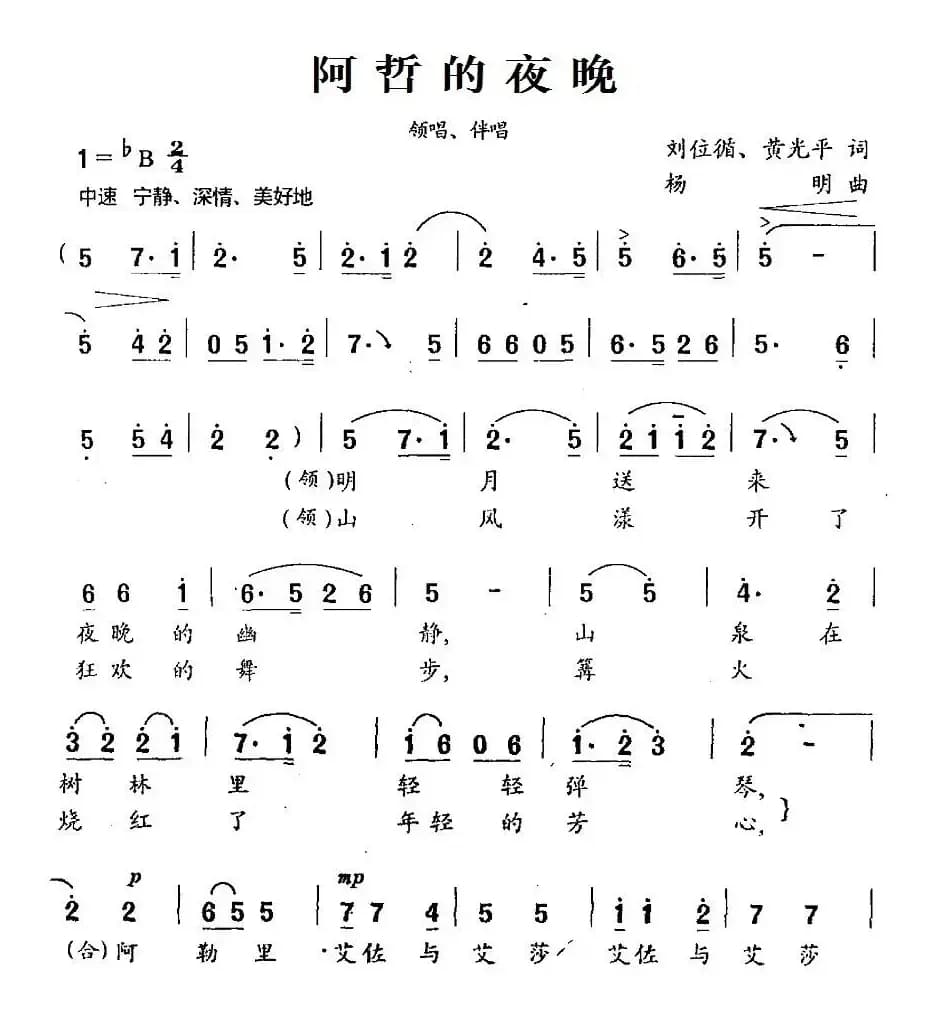 阿哲的夜晚
领唱、伴唱
1=♭B 2/4
刘位循、黄光平 词
中速 宁静、深情、美好地
杨 明 曲
( 5 7·1 | 2· 5 | 2·1 2 | 2 4·5 | 5 6·5 | 5 - |
5 4 2 | 0 5 1·2 | 7· 5 | 6 6 0 5 | 6·5 2 6 | 5· 6 |
5 5 4 | 2 2 ) | 5 7·1 | 2· 5 | 2 1 1 2 | 7· 5 |
(领)明 月 送 来
(领)山 风 漾 开 了
6 6 1 | 6·5 2 6 | 5 - | 5 5 | 4· 2 |
夜晚 的 幽 静, 山 泉 在
狂欢 的 舞 步, 篝 火
3 2 2 1 | 7·1 2 | 1 6 0 6 | 1·2 3 | 2 - |
树 林 里 轻 轻 弹 琴,
烧 红 了 年轻 的 芳 心, }
p mp
2 2 | 6 5 5 | 7 7 4 | 5 5 | 1 1 2 | 7 7
(合)阿 勒 里 艾佐 与 艾 莎 艾佐 与 艾 莎